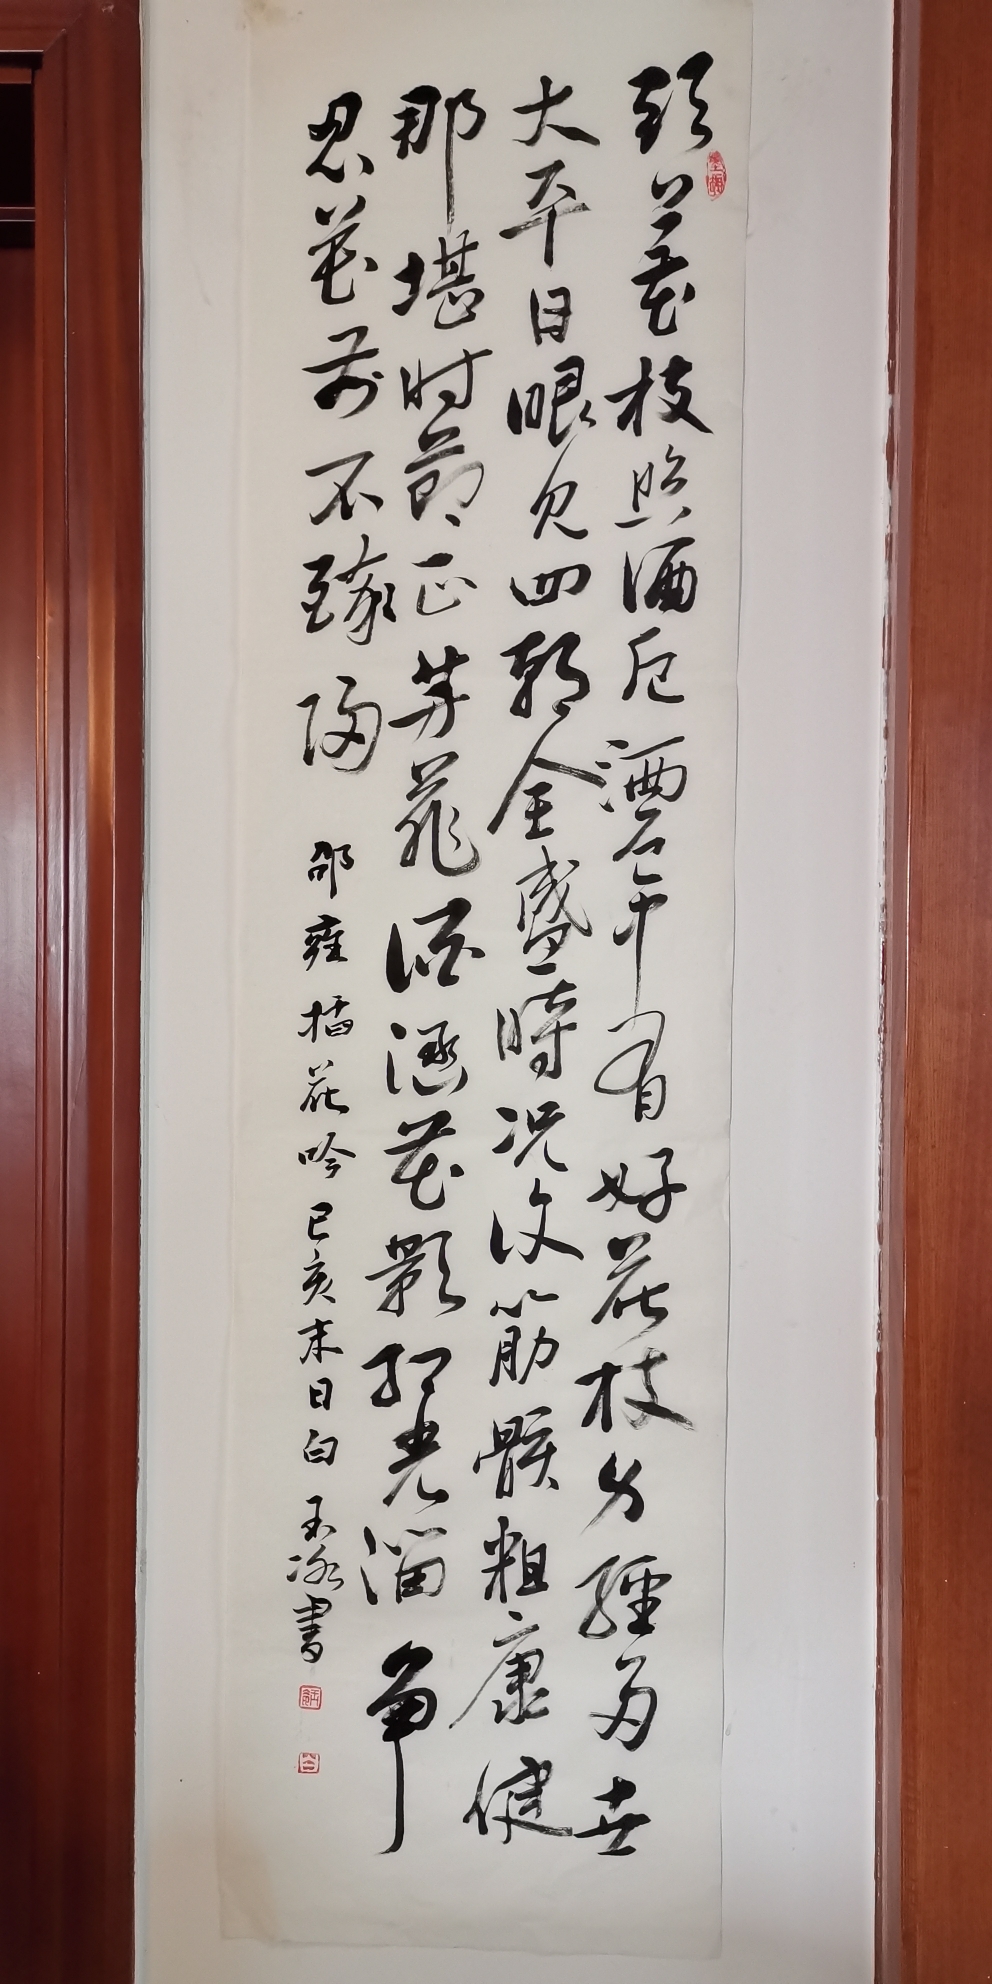 頭上花枝照酒卮酒卮中有好花枝身經两世
大平日眼见四朝全盛時况复筋骸粗康健
那堪时節正芳菲酒涵花影红光溜争
忍花前不醉归 邵雍插花吟己亥末日白玉冰書